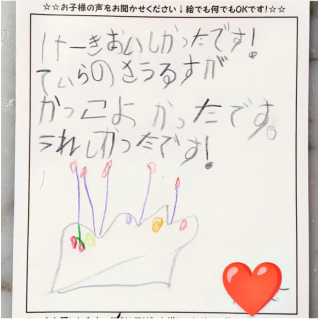 ☆☆お子様の声をお聞かせください↓絵でも何でもOKです!☆☆
けーきおいしかったです!
てぃらのさうるすが
かっこよかったです。
うれしかったです!